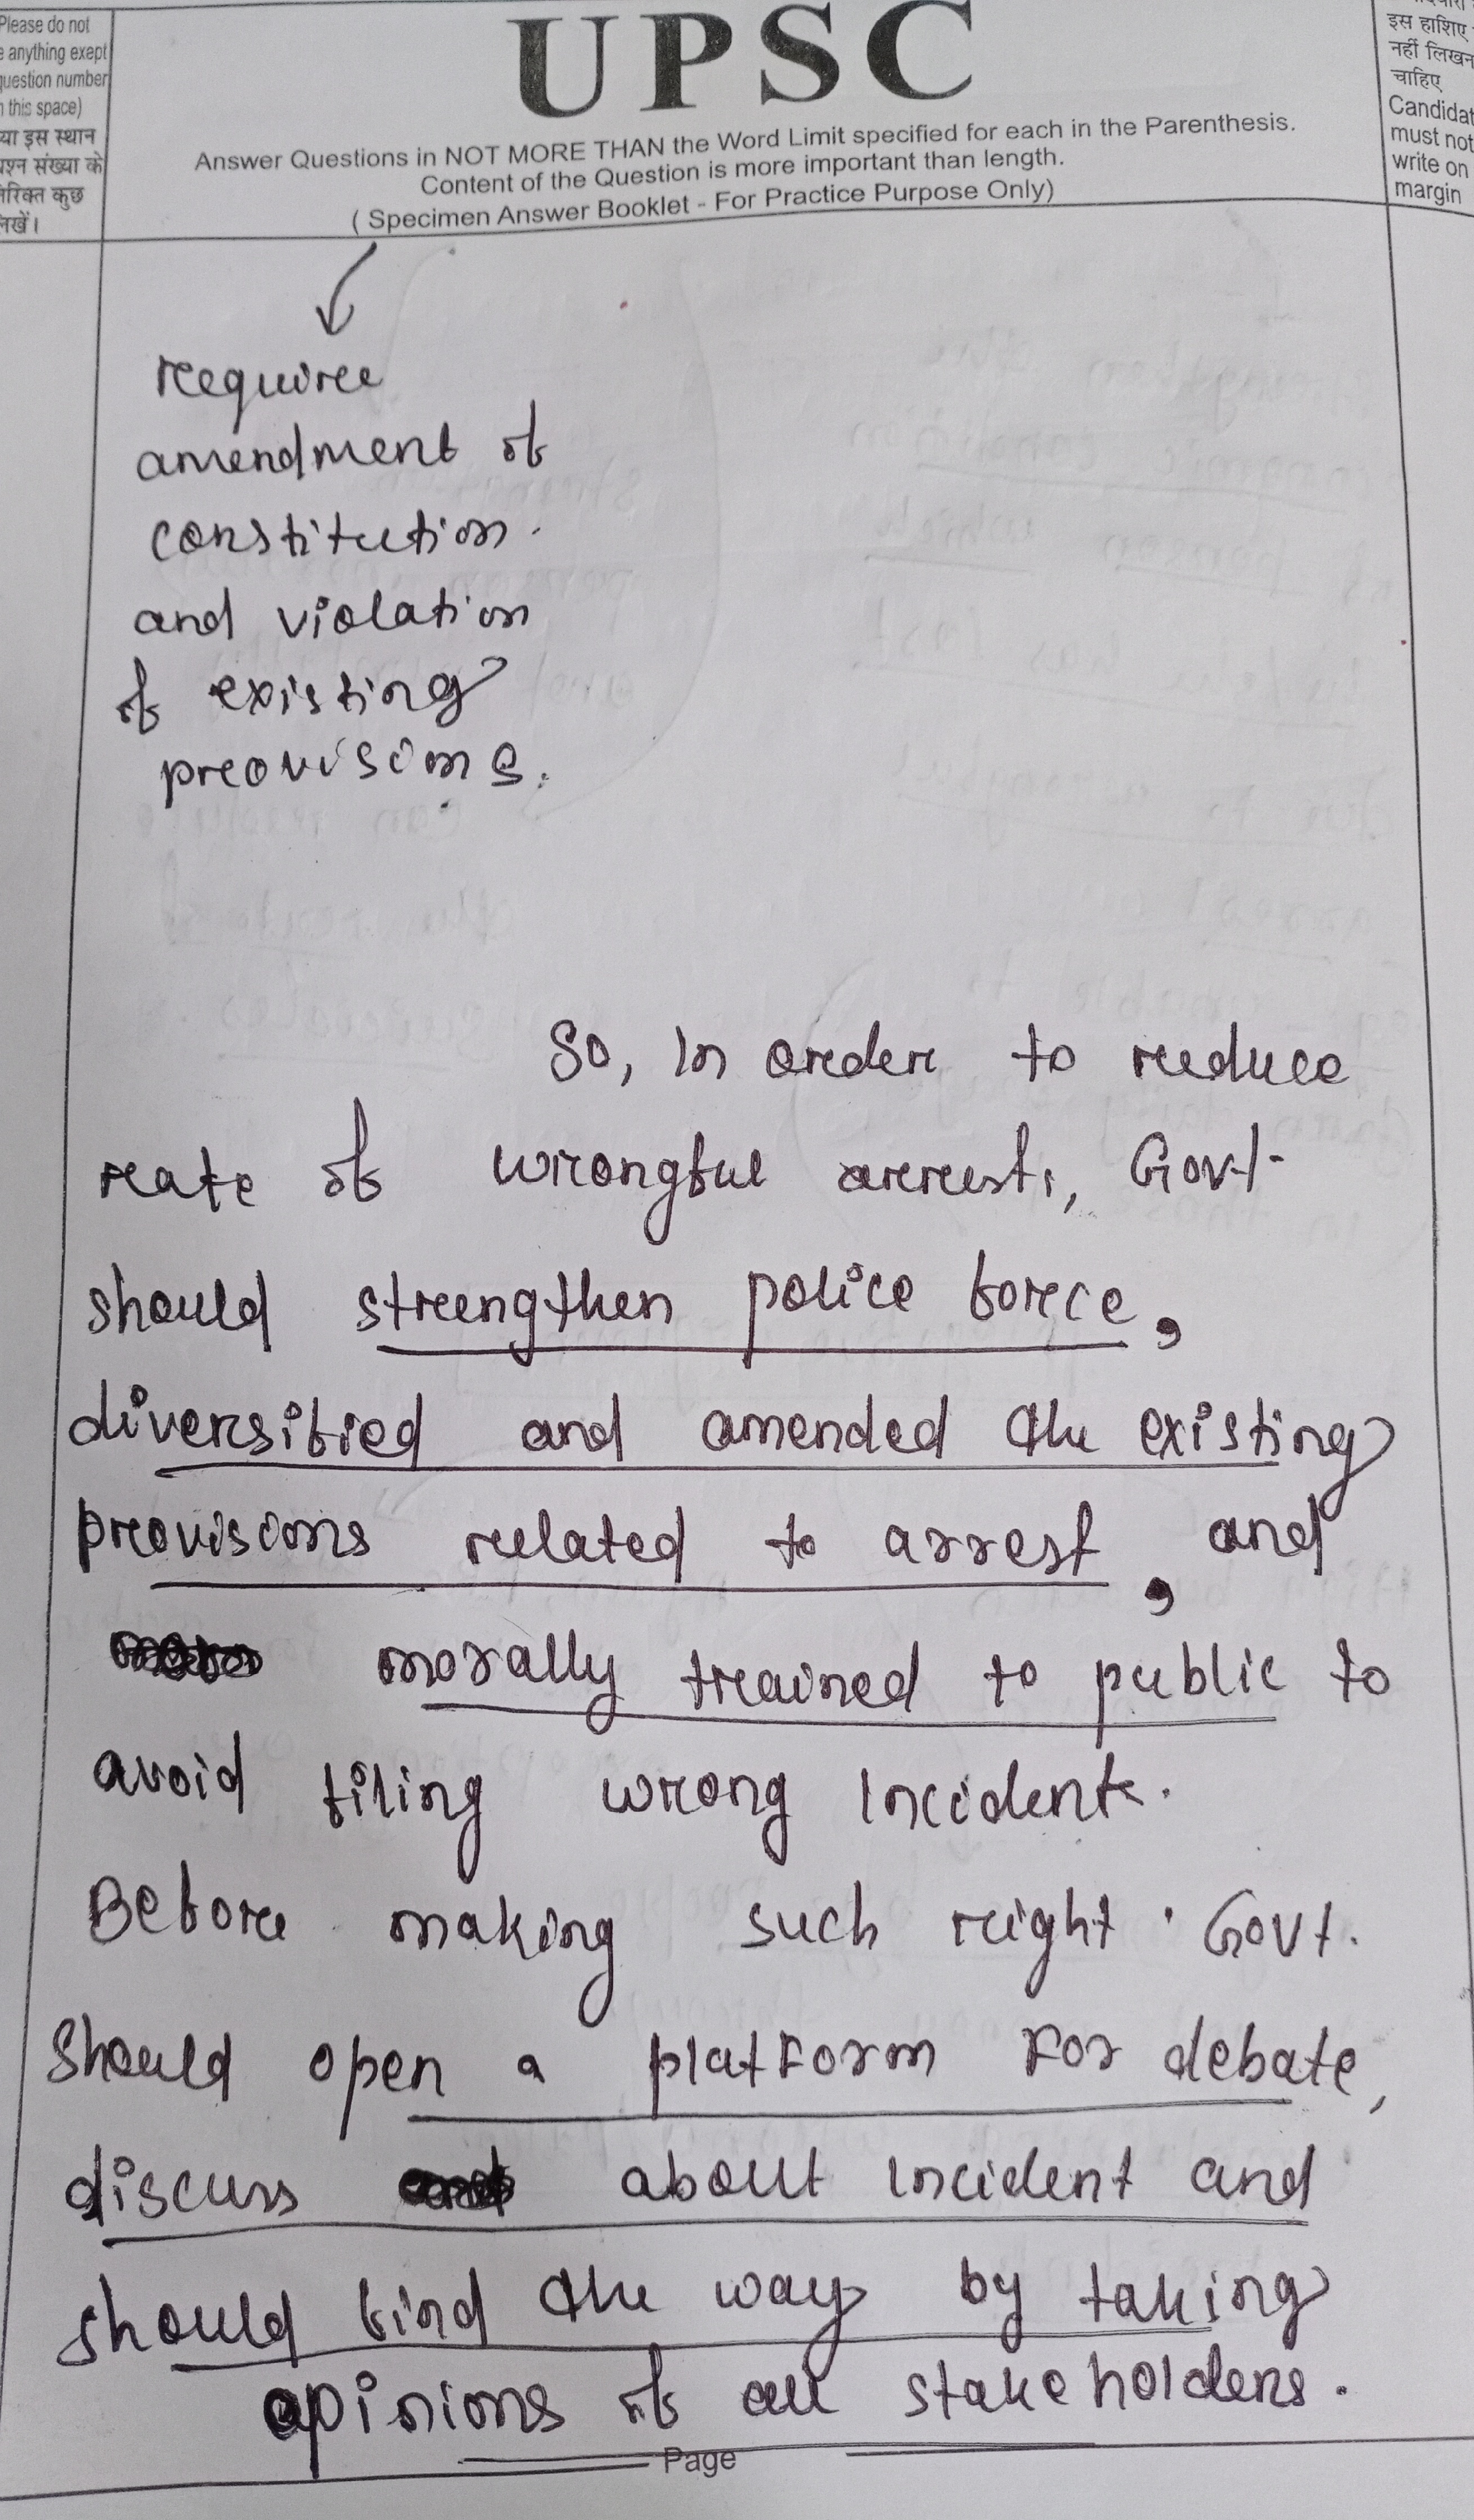 Please do not
anything exept
question number
this space)
इस स्थान
संख्या के
कुछ
UPSC
Answer Questions in NOT MORE THAN the Word Limit specified for each in the Parenthesis.
Content of the Question is more important than length.
( Specimen Answer Booklet - For Practice Purpose Only)
इस हाशिए
नहीं
चाहिए
must not
write on
margin
require
amendment of
constitution.
and violation
of existing
provisions.
So, In order to reduce
rate of wrongful arrests, Govt
should strengthen police force,
diversified and amended the existing
provisions related to arrest, and
morally trained to public to
avoid filing wrong Incidents.
Before making such right Govt.
should open a platform For debate,
discuss about incident and
should find the way by taking
opinions of all stakeholders.
Page